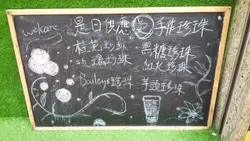 wecare 是日供應 手作珍珠
珍珠 黑糖珍珠
珍珠 紅火珍珠
Baileys珍珠 芋頭珍珠